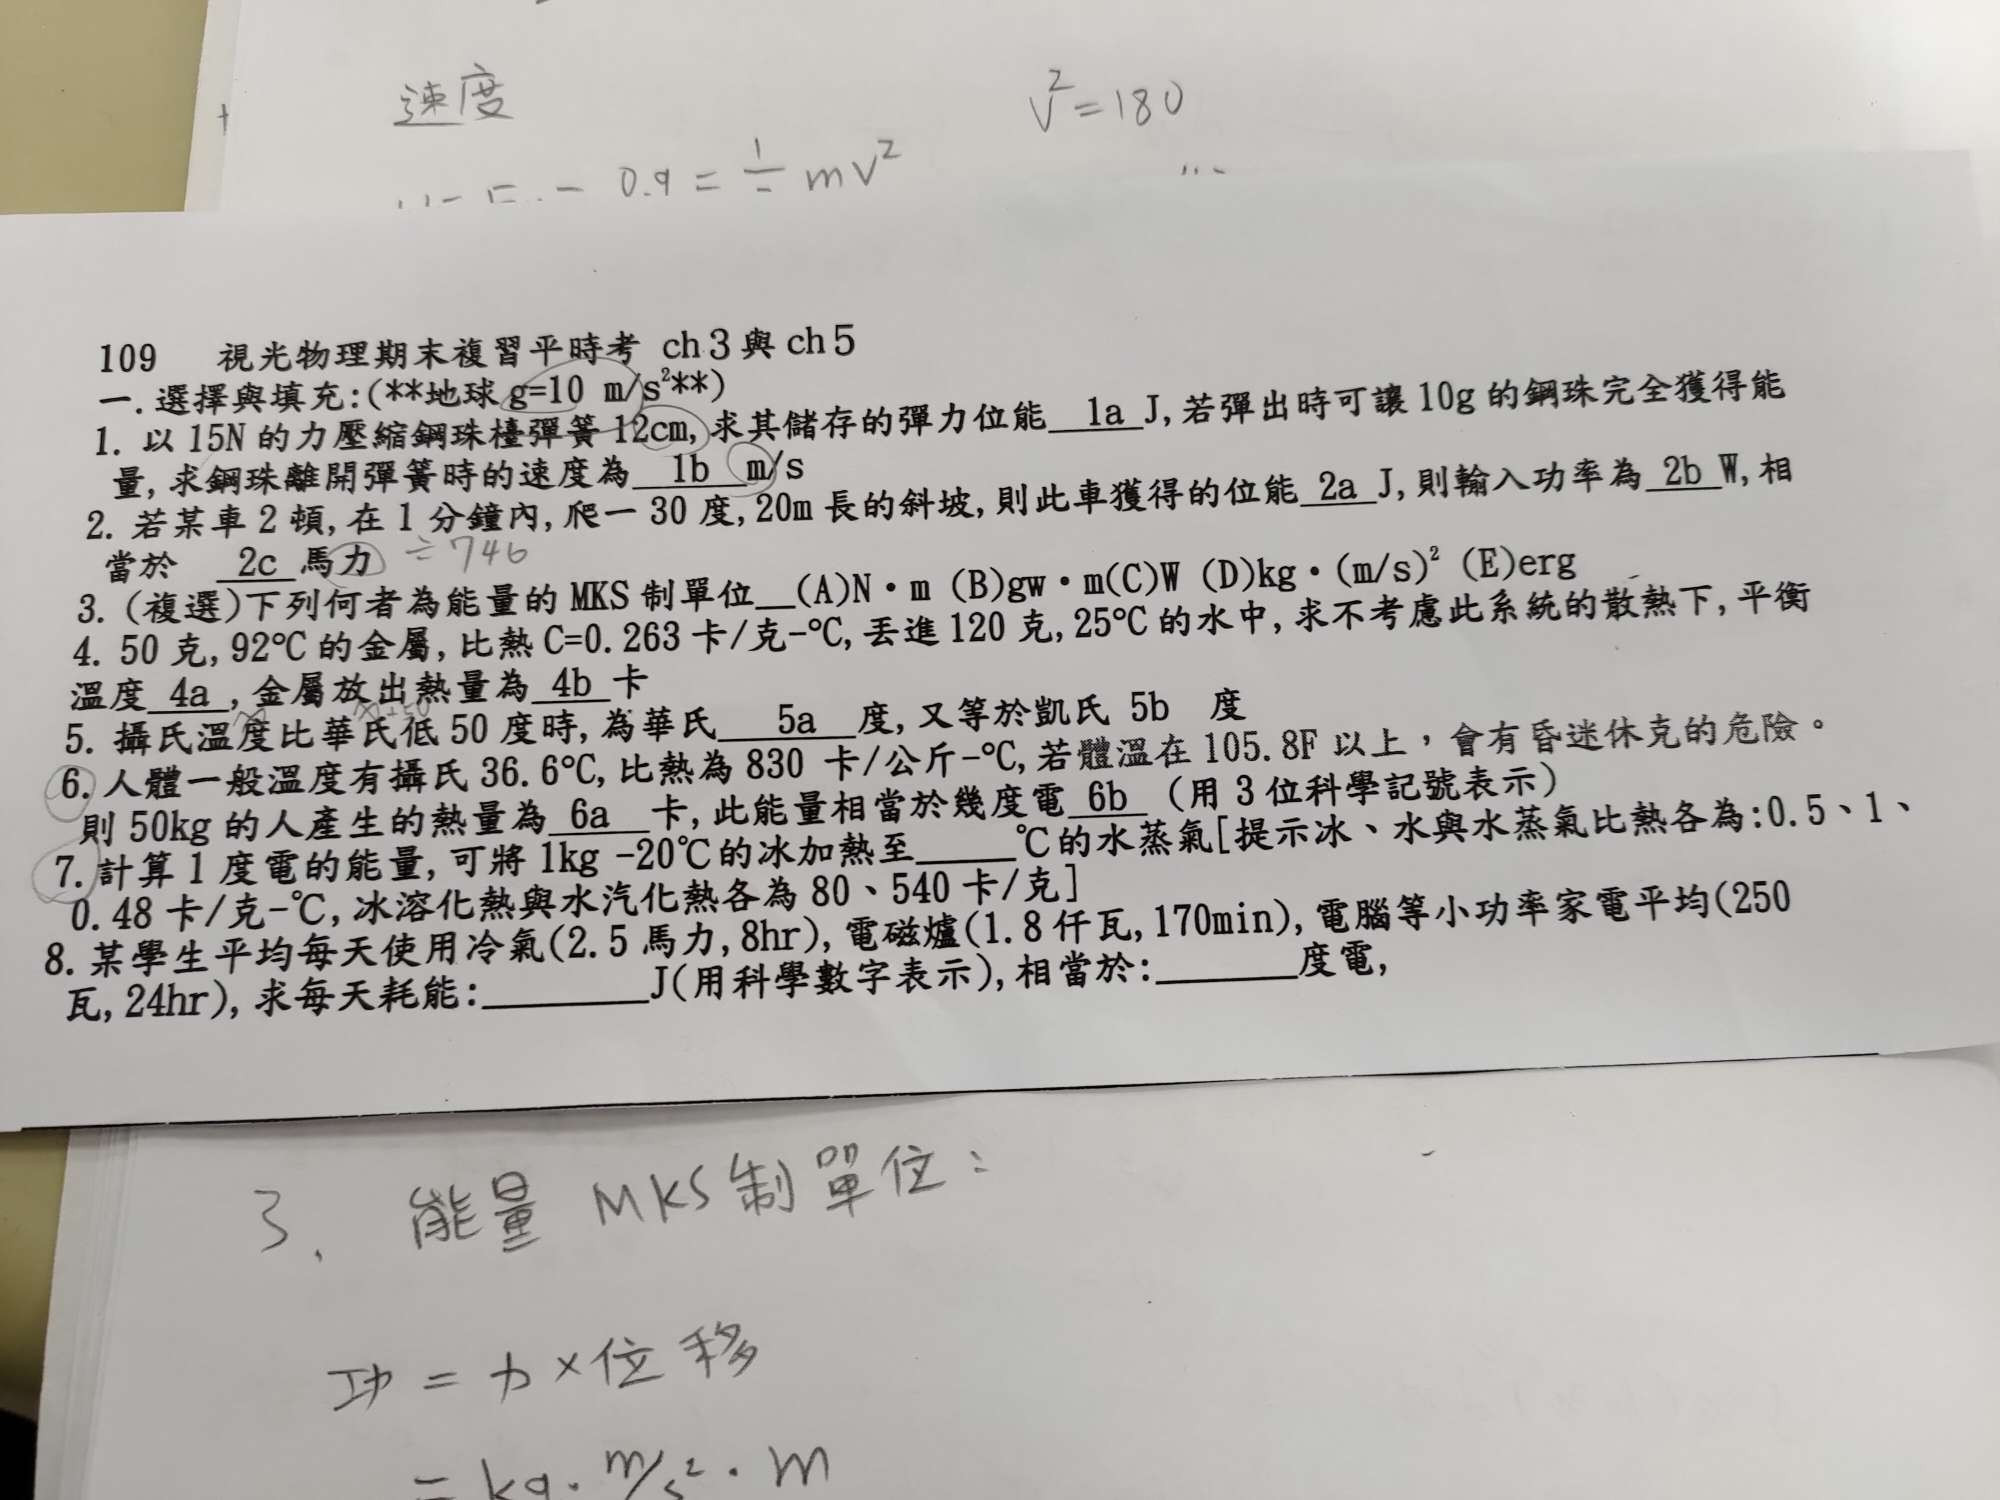 速度
V²=180
0.9 = ½ mv²
109 視光物理期末複習平時考 ch3與ch5
一.選擇與填充:(**地球g=10 m/s²**)
1. 以15N的力壓縮鋼珠檯彈簧12cm,求其儲存的彈力位能 1a J,若彈出時可讓10g的鋼珠完全獲得能
量,求鋼珠離開彈簧時的速度為 1b m/s
2. 若某車2頓,在1分鐘內,爬一30度,20m長的斜坡,則此車獲得的位能 2a J,則輸入功率為 2b W,相
當於 2c 馬力 ÷746
3. (複選)下列何者為能量的MKS制單位__(A)N·m (B)gw·m(C)W (D)kg·(m/s)² (E)erg
4. 50克,92℃的金屬,比熱C=0.263卡/克-℃,丟進120克,25℃的水中,求不考慮此系統的散熱下,平衡
溫度 4a ,金屬放出熱量為 4b 卡
x x+50
5. 攝氏溫度比華氏低50度時,為華氏 5a 度,又等於凱氏 5b 度
6. 人體一般溫度有攝氏36.6℃,比熱為830 卡/公斤-℃,若體溫在105.8F以上，會有昏迷休克的危險。
則50kg的人產生的熱量為 6a 卡,此能量相當於幾度電 6b (用3位科學記號表示)
7. 計算1度電的能量,可將1kg -20℃的冰加熱至_____℃的水蒸氣[提示冰、水與水蒸氣比熱各為:0.5、1、
0.48卡/克-℃,冰溶化熱與水汽化熱各為80、540卡/克]
8. 某學生平均每天使用冷氣(2.5馬力,8hr),電磁爐(1.8仟瓦,170min),電腦等小功率家電平均(250
瓦,24hr),求每天耗能:________J(用科學數字表示),相當於:_______度電,
3. 能量 MKS制單位:
功 = 力×位移
= kg·m/s²·m